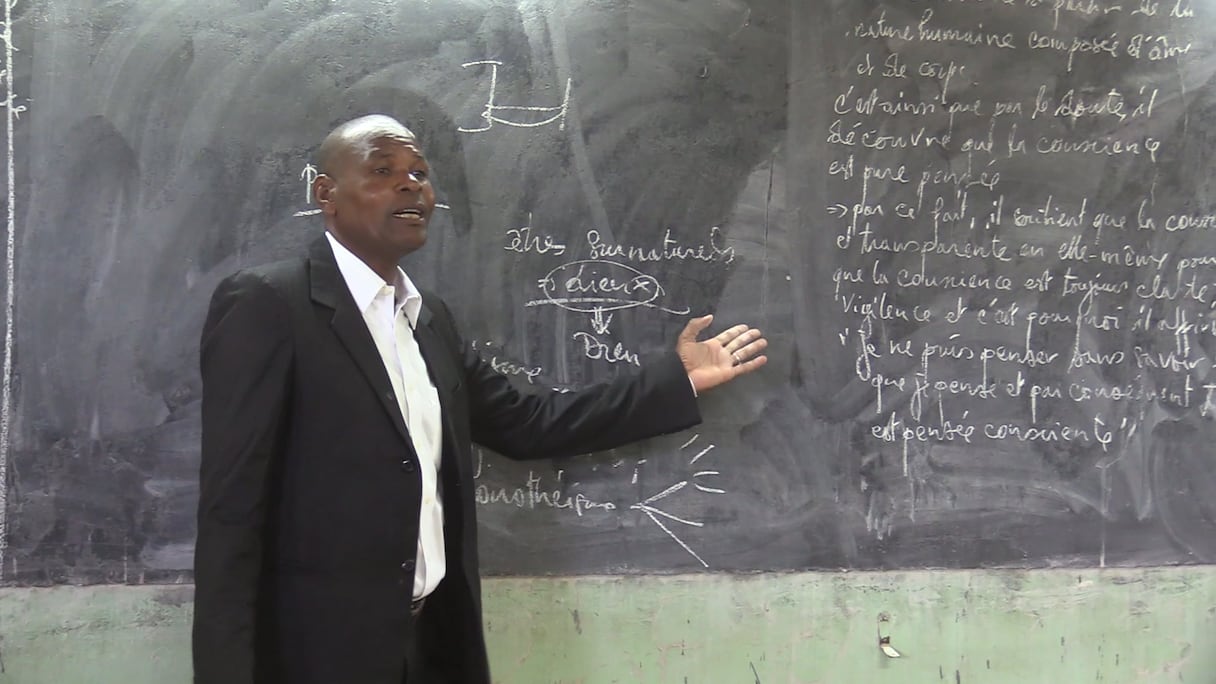 être surnaturels
→ dieux
⇓
Dieu
onothéisme
à partir de la
nature humaine composée d'âme
et de corps.
c'est ainsi que par le doute, il
découvre que la conscience
est pure pensée
⇒ par ce fait, il soutient que la
et transparente en elle-même pour
que la conscience est toujours
Vigilence et c'est pourquoi il
"je ne puis penser sans savoir
que je pense et par conséquent
est pensée consciente"